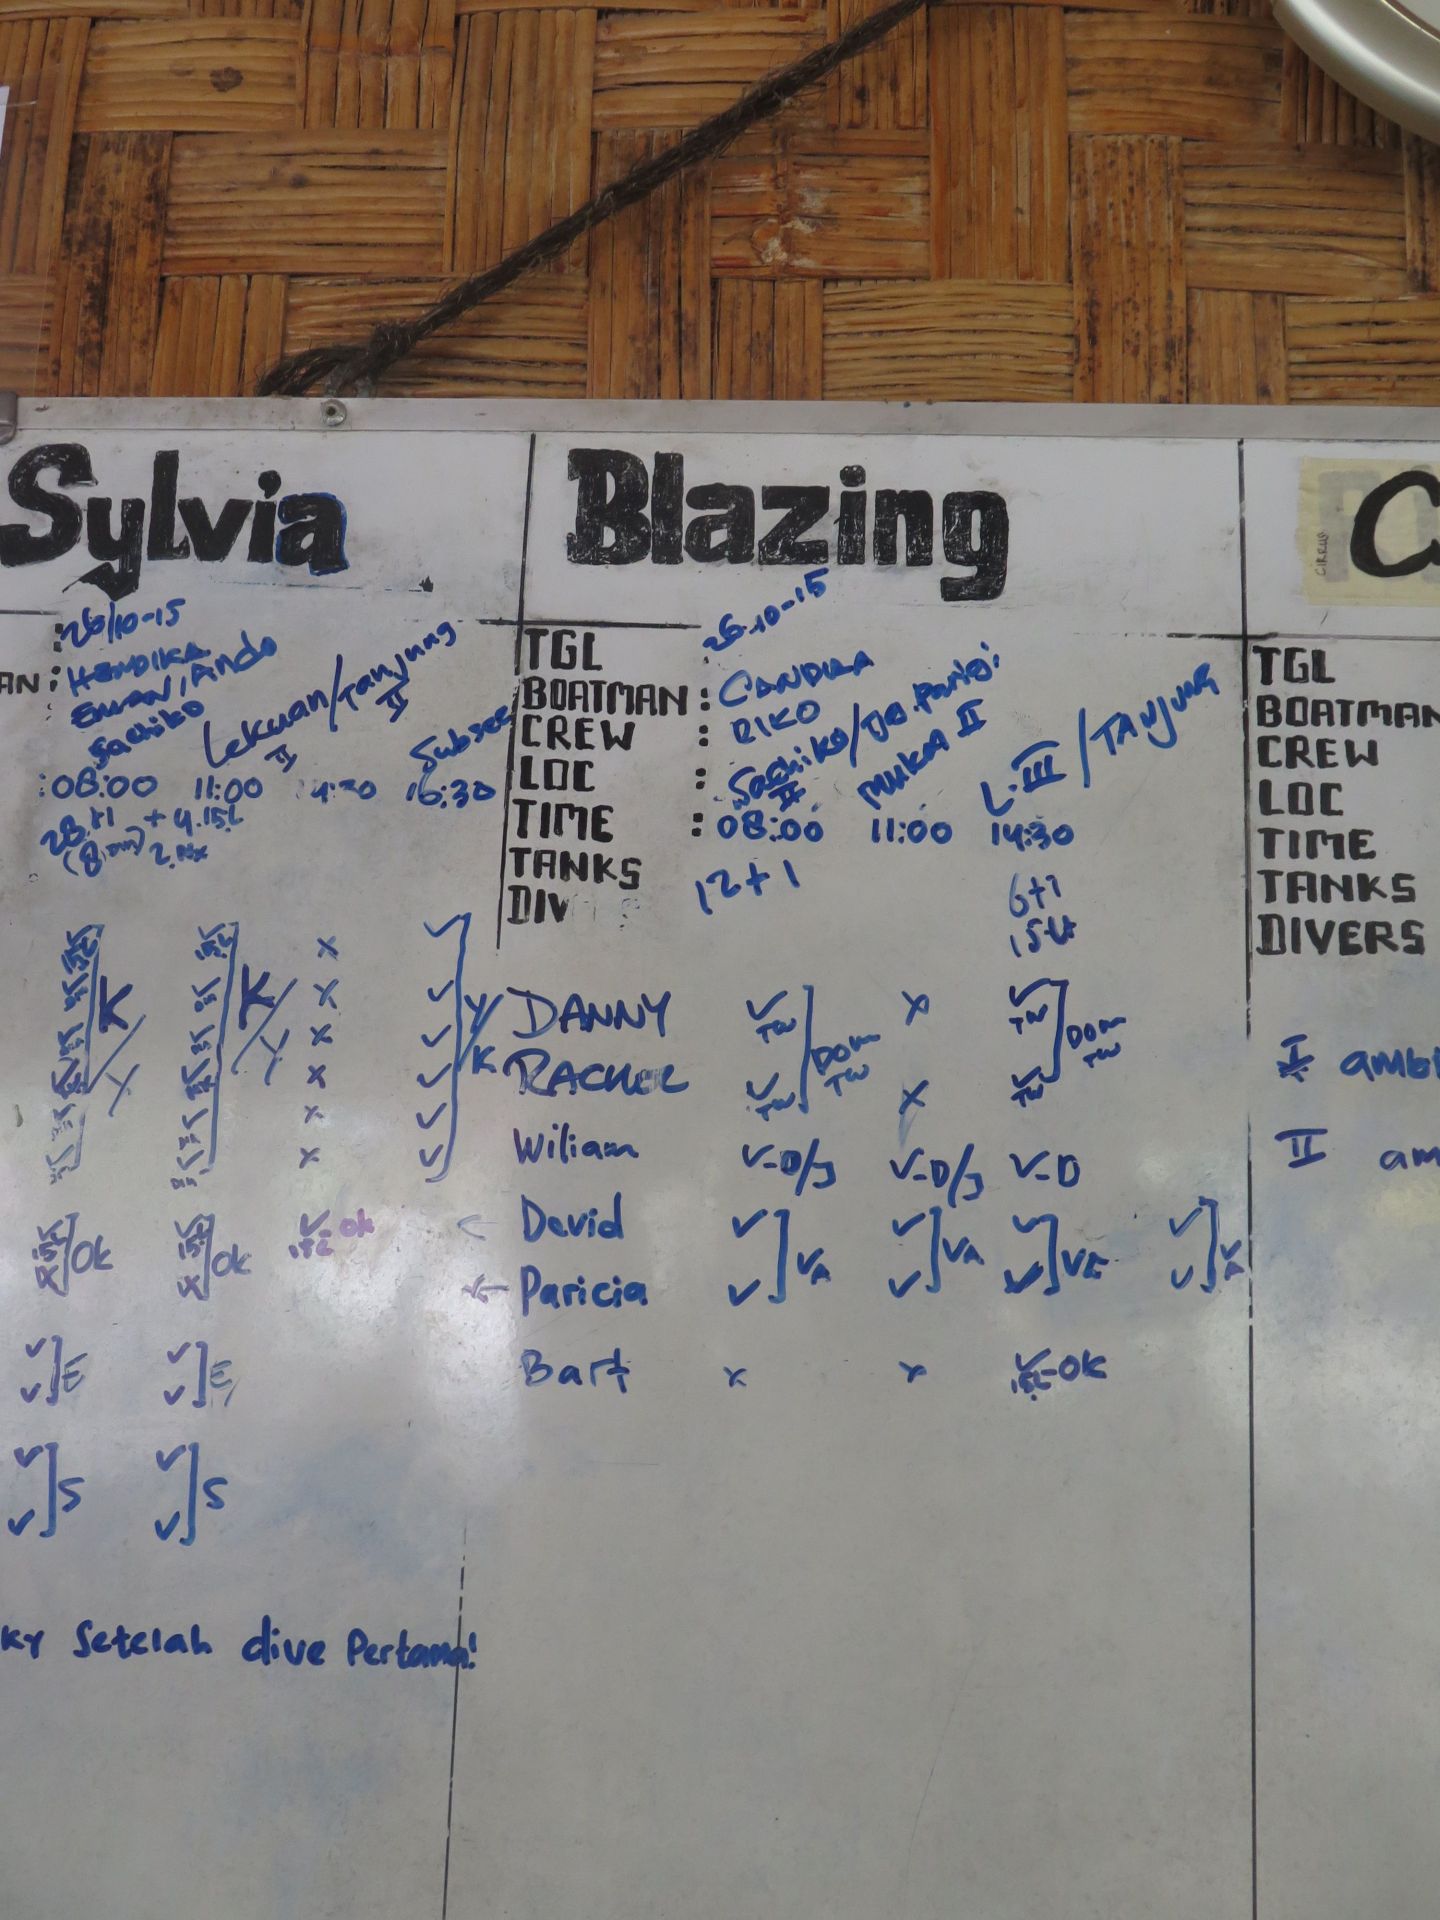 Sylvia
26/10-15
AN : HENDIKA
EMAN, Ando
Sachiko Lekuan II / Tanjung II
: 08:00 11:00 14:30 16:30
28+1 + 4.15L
K K
Y Y
Y/K
15L/Ok 15L/Ok ✓-Ok
✓ ✓ ]E ✓ ✓ ]E
✓ ✓ ]S ✓ ✓ ]S
ky Setelah dive Pertama!
Blazing
TGL 26-10-15
BOATMAN : CANDRA
CREW : RIKO
LOC : Sachiko II / MUKA II L.III / TANJUNG
TIME : 08:00 11:00 14:30
TANKS 12+1 6+1
DIV 15L
DANNY ✓ TW x ✓ TW
RACHEL ✓ TW ]Dom TW x ✓ TW ]Dom TW
Wiliam ✓-D/J ✓-D/J ✓-D
David ✓ ✓ ✓ ✓
Paricia ✓ ]VA ✓ ]VA ✓ ✓
Bart x x ✓-OK 15L
CIRRUS
C
TGL
BOATMAN
CREW
LOC
TIME
TANKS
DIVERS
I ambi
II am